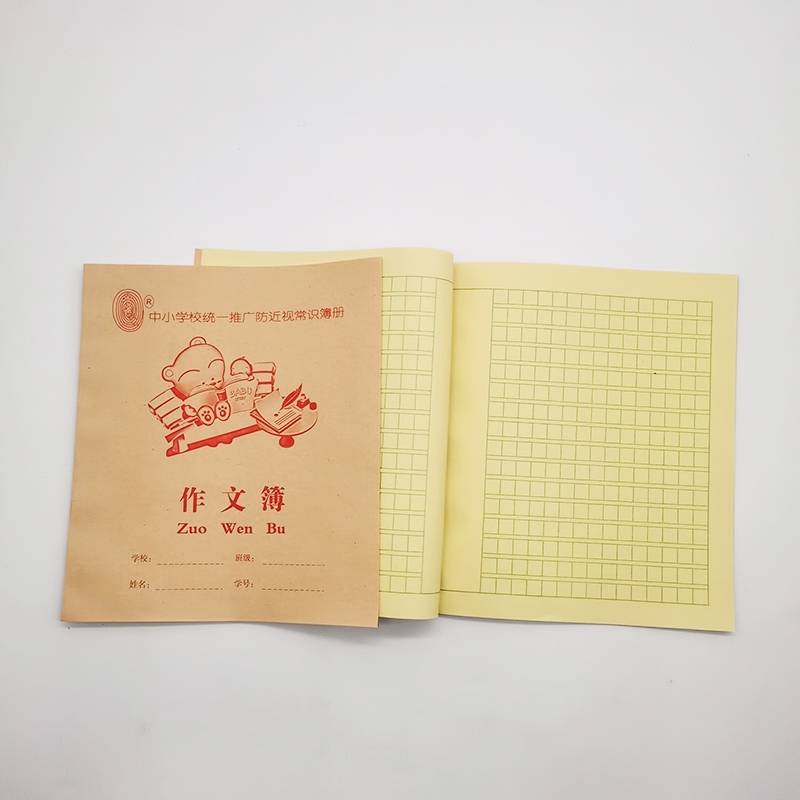 ®
中小学校统一推广防近视常识簿册
BABU
作文簿
Zuo Wen Bu
学校: 班级:
姓名: 学号: